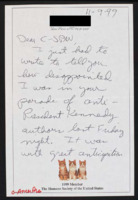 11-9-99
Dear C-SPAN
I just had to
write to tell you
how disappointed
I was in your
parade of anti-
President Kennedy
authors last Friday
night. It was
with great anticipation
1999 Member
The Humane Society of the United States